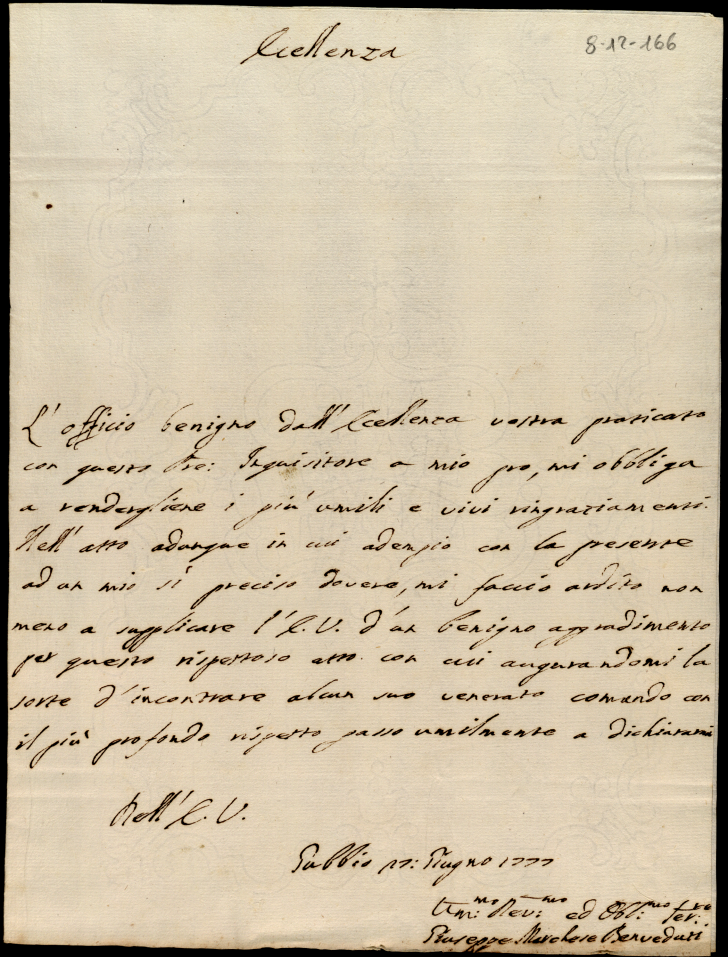 8-12-166
Eccellenza
L'officio benigno dall'Eccellenza vostra praticato
con questo Pre: Inquisitore a mio pro, mi obbliga
a rendergliene i più umili e vivi ringraziamenti.
Nell'atto adunque in cui adempio con la presente
ad un mio sì preciso dovere, mi faccio ardito non
meno a supplicare l'E. V. d'un benigno aggradimento
per questo rispettoso atto. con cui augurandomi la
sorte d'incontrare alcun suo venerato comando con
il più profondo rispetto passo umilmente a dichiararmi
Dell'E. V.
Gubbio 27: Giugno 1777
Um:mo Dev:mo ed Obbl:mo Ser:re
Giuseppe Marchese Benveduti